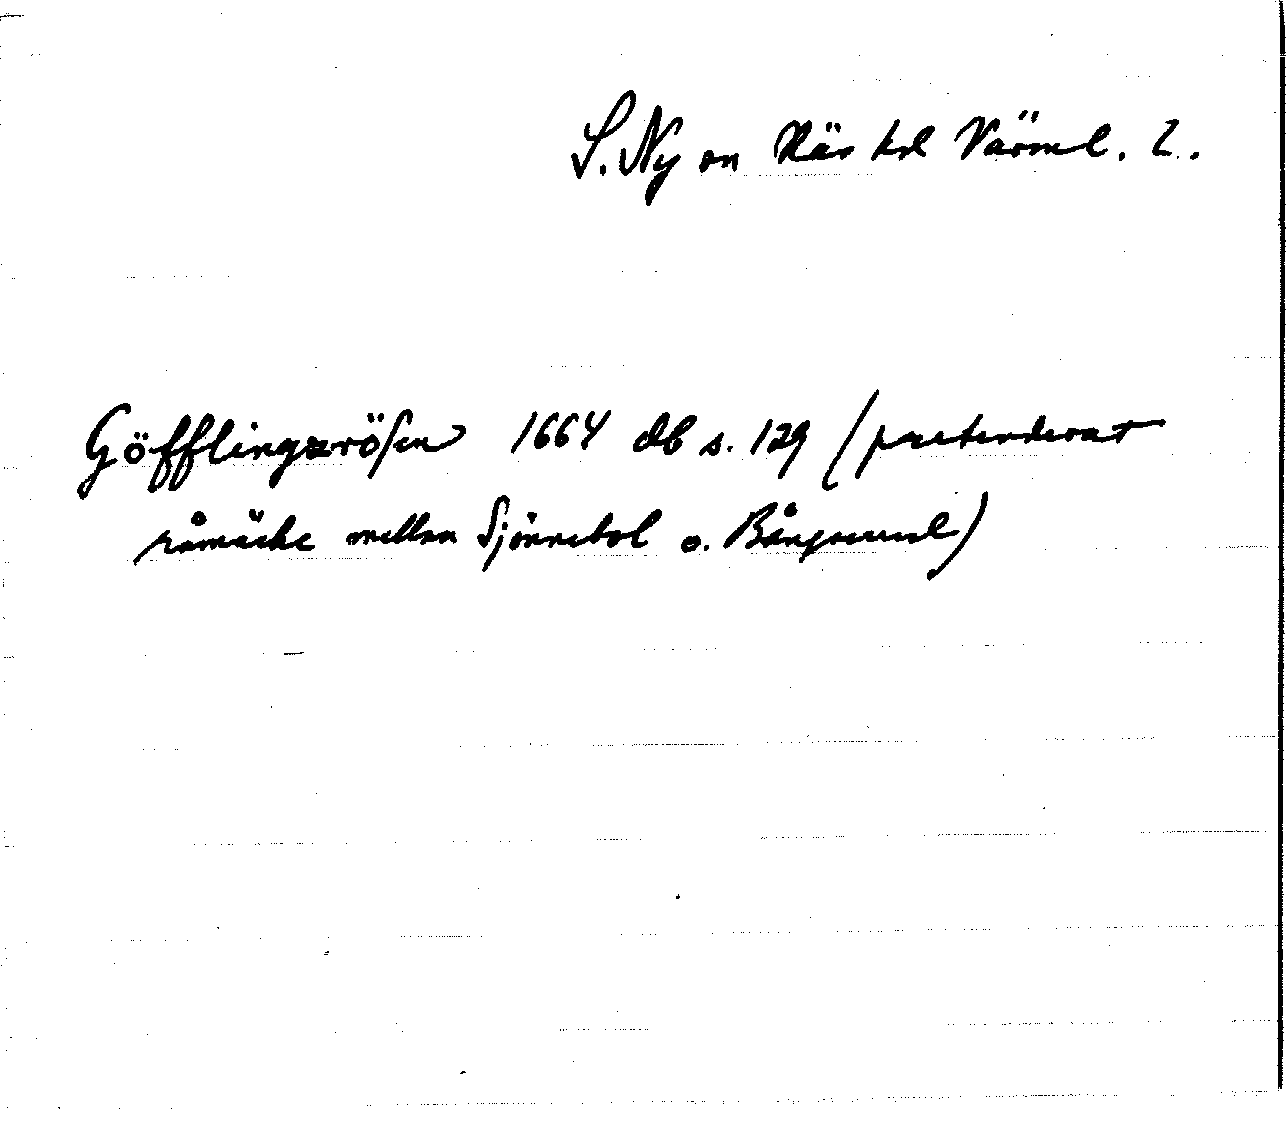 S. Ny sn Näs hd Värml. l.
Göfflingzrösen 1664 db s. 129 (pretenderat
råmärke mellan Sjönnebol o. Bångserud)